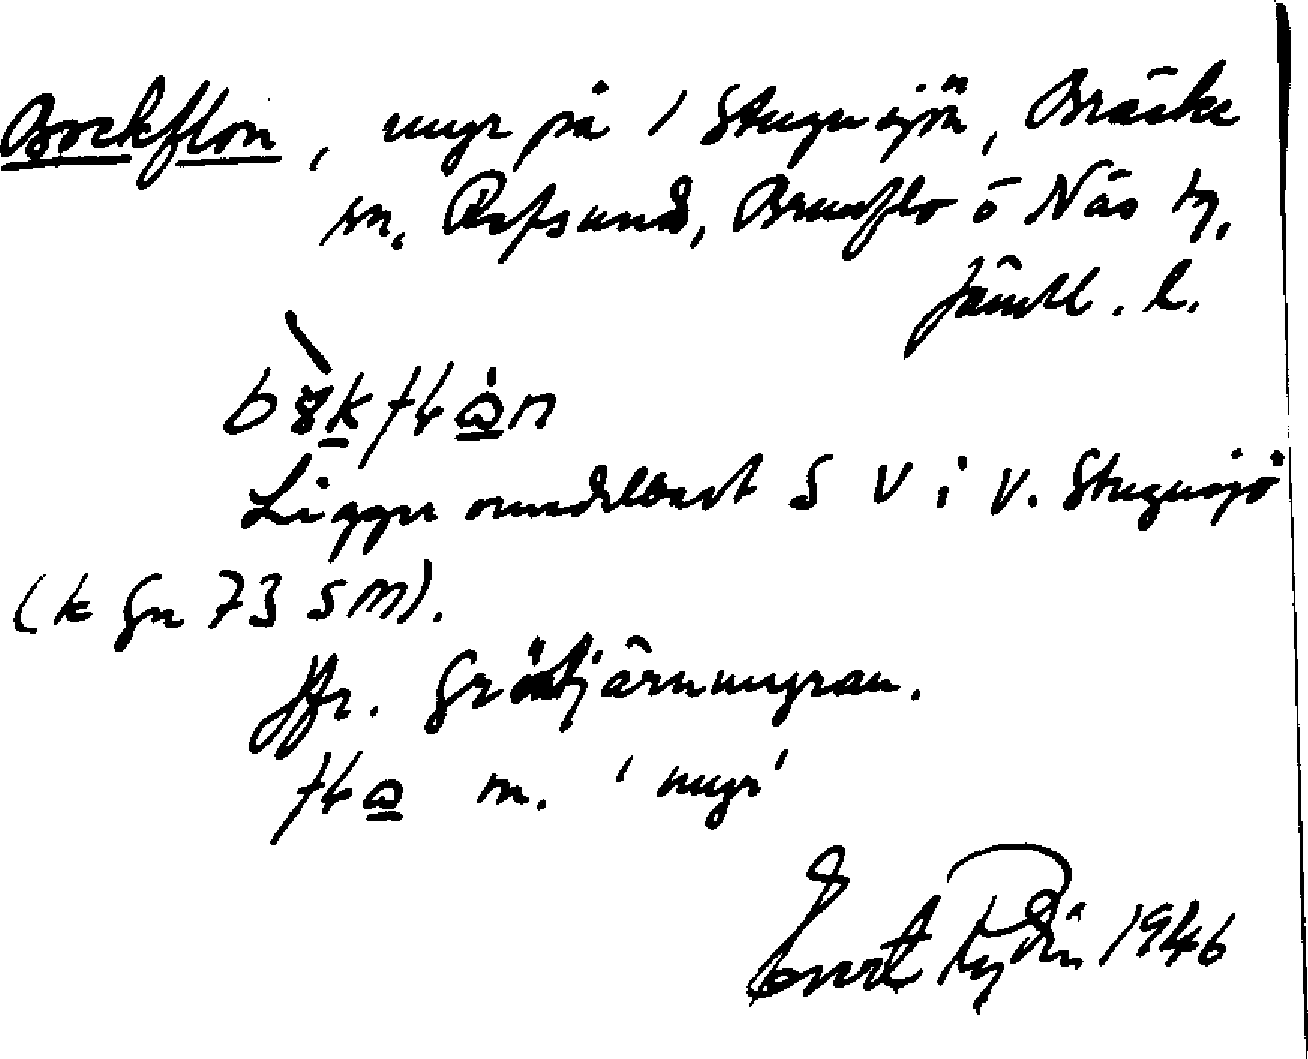 Bockflon, myr på 1 Stugusjön, Bräcke
sn, Refsund, Brunflo o Näs tg,
Jämtl. l.
Ligger omedelbart S V i V. Stugusjö
(k gr 73 S M).
Jfr. Gröntjärnmyran.
m. 'myr'
Evert Rydin 1946